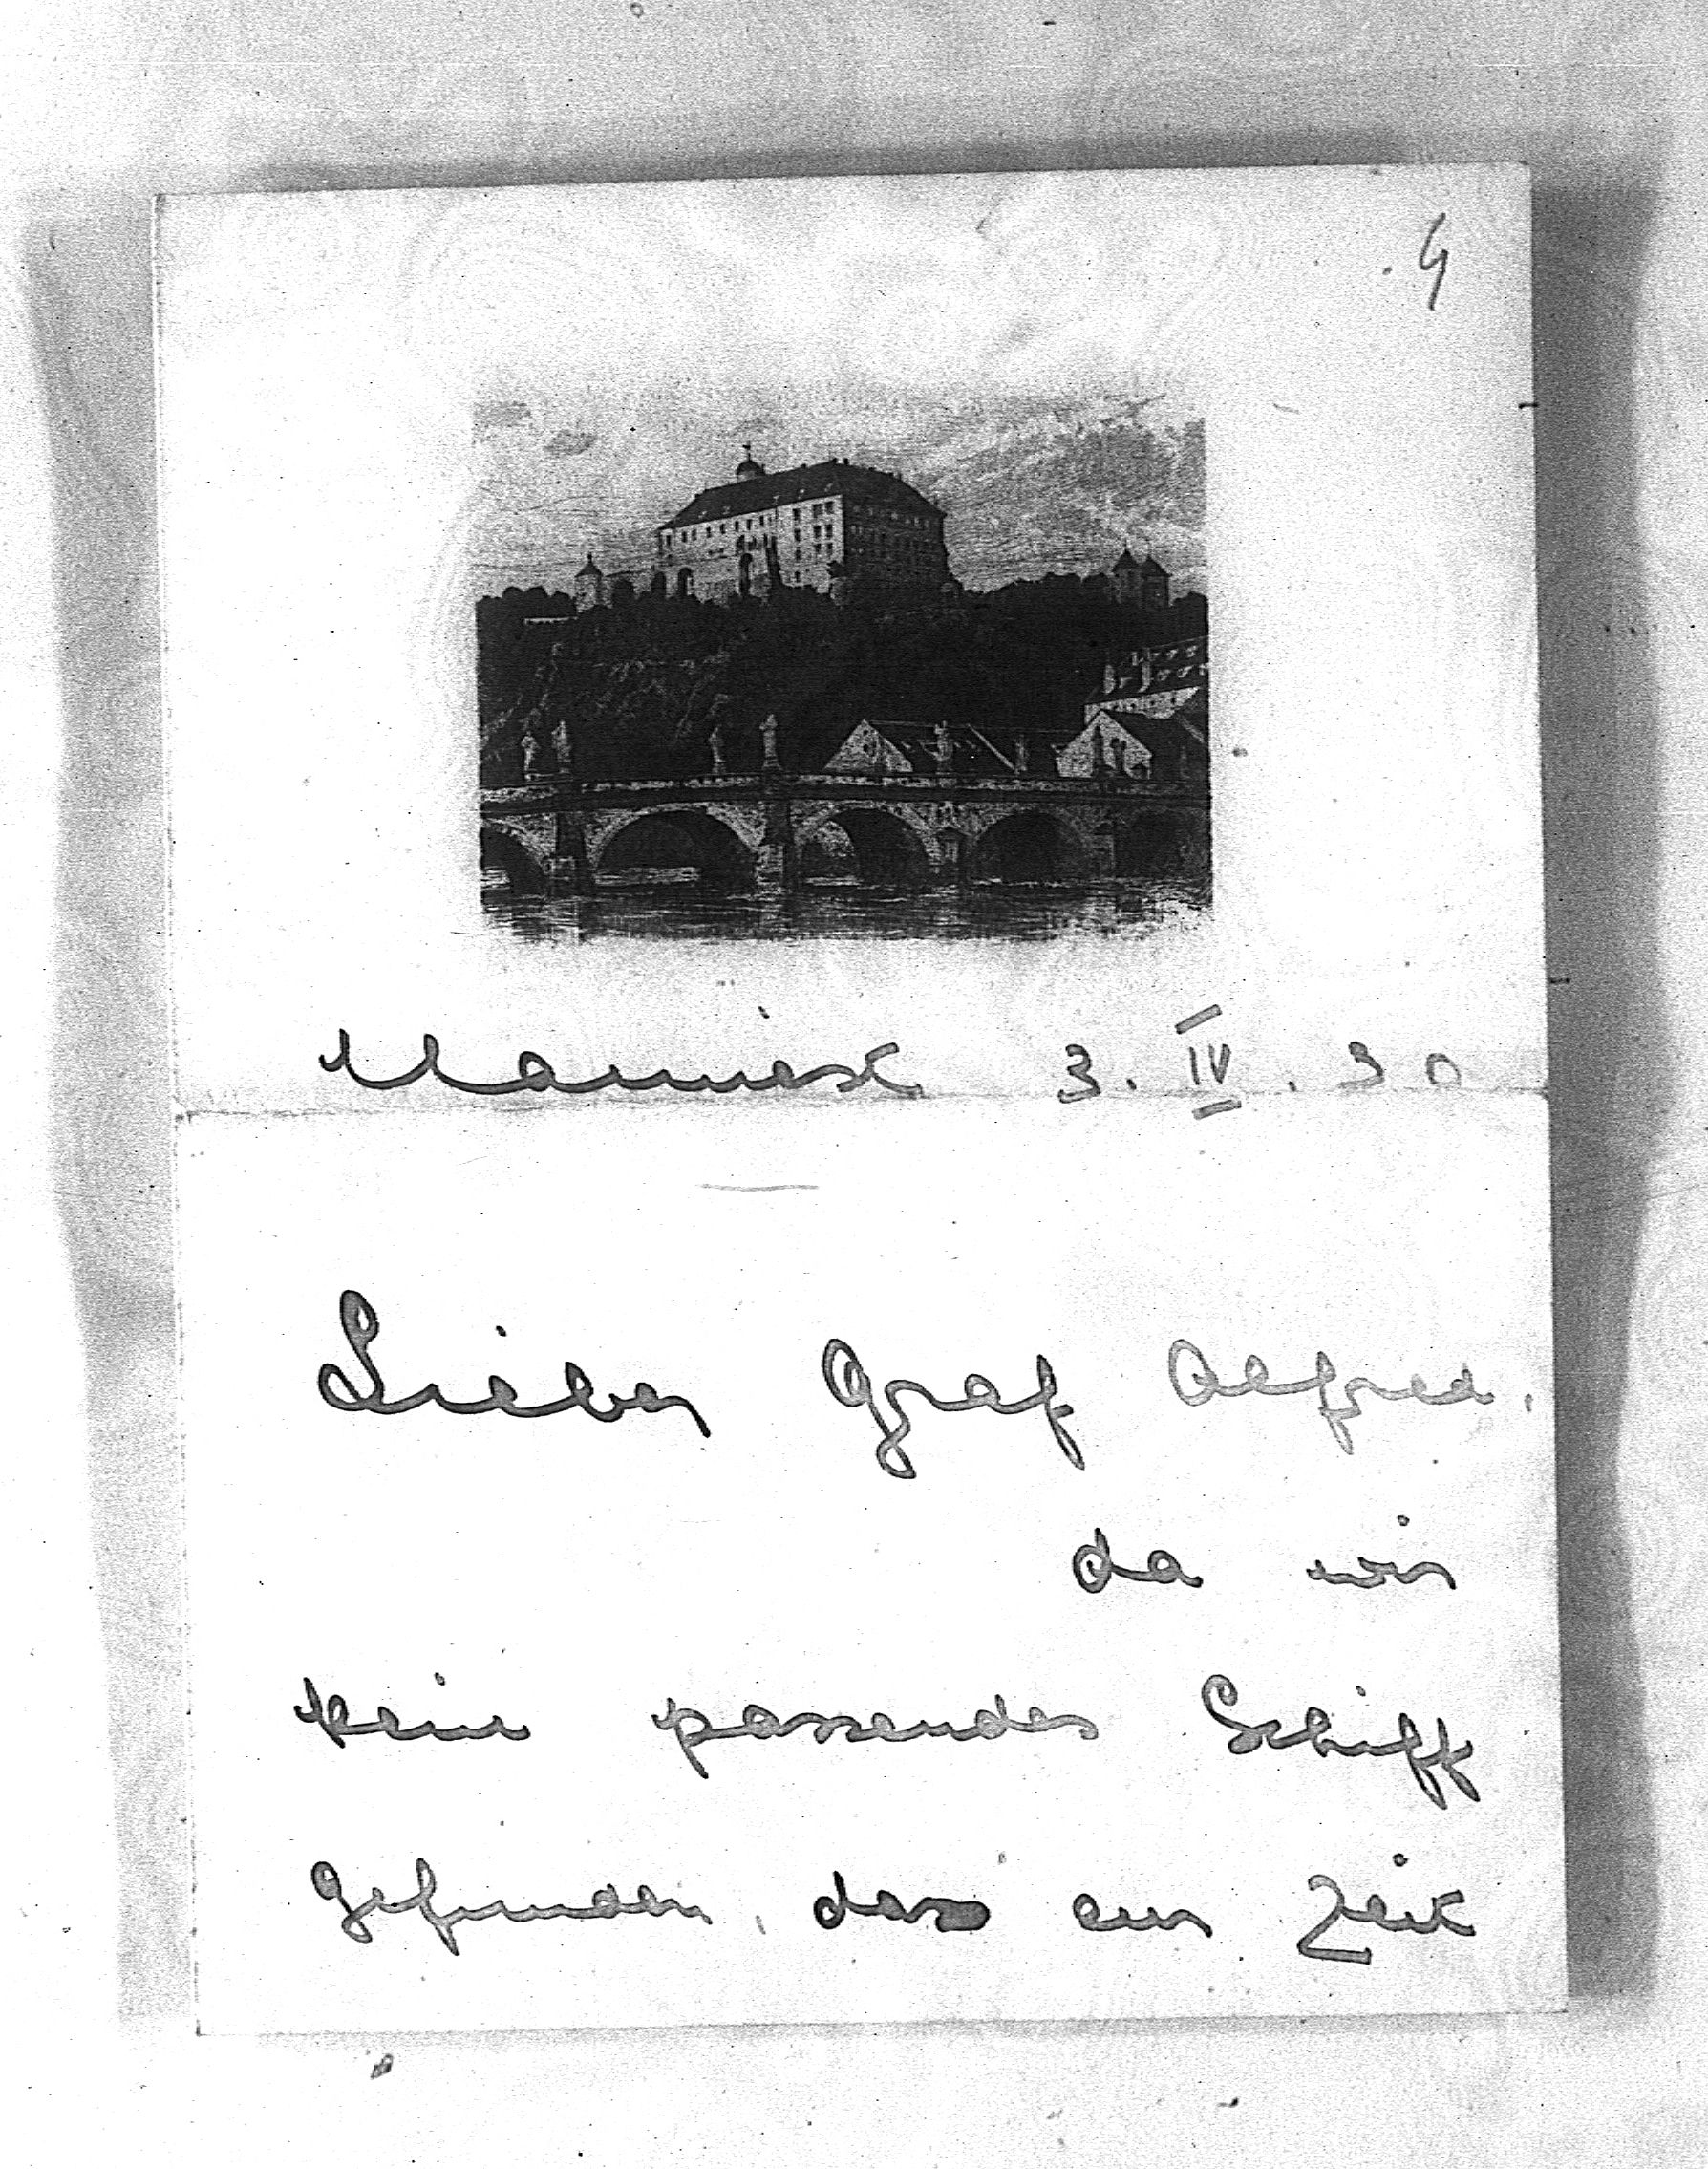 4
3. IV. 30
Lieber Graf Alfred,
da wir
kein passendes Schiff
gefunden, das zur Zeit